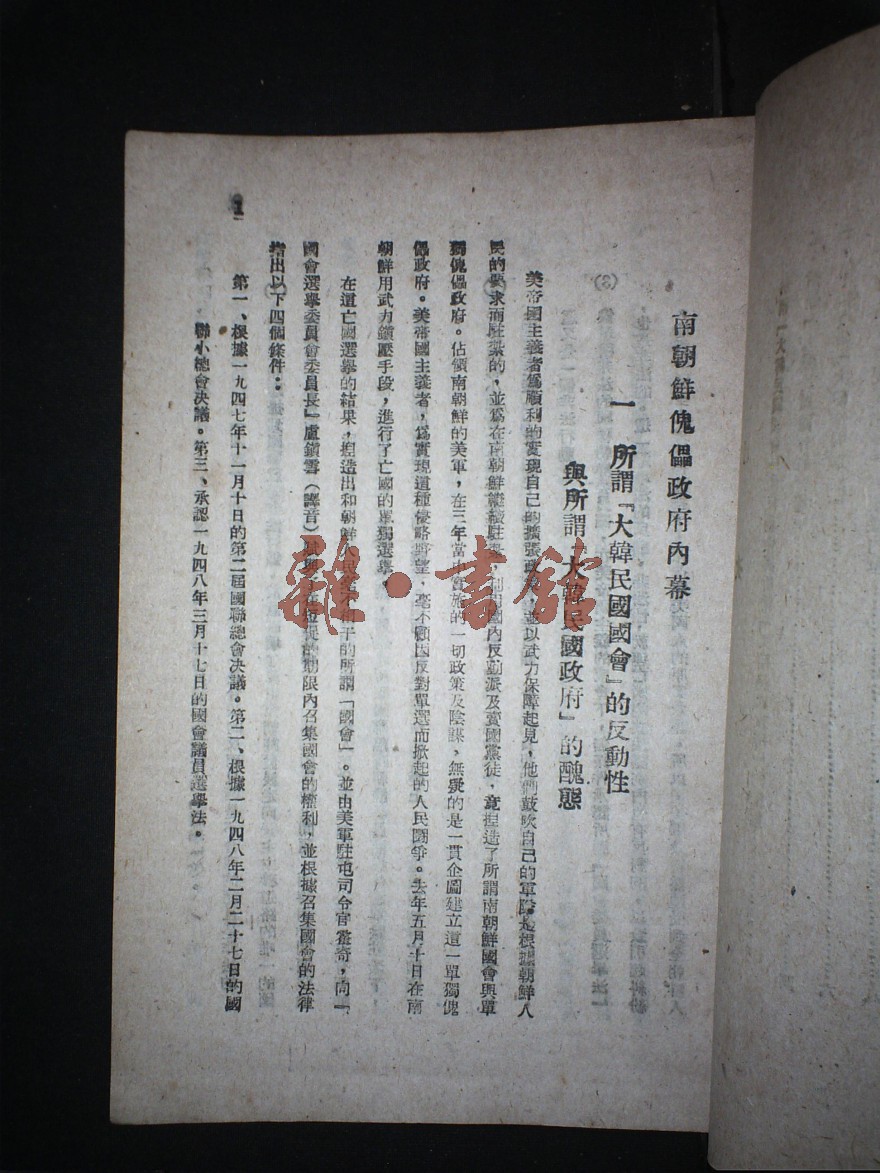 南朝鮮傀儡政府內幕
一 所謂『大韓民國國會』的反動性
與所謂『大韓民國政府』的醜態
美帝國主義者爲順利的實現自己的擴張政策，並以武力保障起見，他們鼓吹自己的軍隊是根據朝鮮人
民的要求而駐紮的，並爲在南朝鮮繼續駐 利用國內反動派及賣國黨徒，竟捏造了所謂南朝鮮國會與單
獨傀儡政府。佔領南朝鮮的美軍，在三年當中實施的一切政策及陰謀，無疑的是一貫企圖建立這一單獨傀
儡政府。美帝國主義者，爲實現這種侵略野望，毫不顧因反對單選而掀起的人民鬪爭。去年五月十日在南
朝鮮用武力鎭壓手段，進行了亡國的單獨選舉。
在這亡國選舉的結果，捏造出和朝鮮人民 不相干的所謂「國會」。並由美軍駐屯司令官霍奇，向「
國會選舉委員會委員長』盧鎭雲（譯音） 短促的期限內召集國會的權利，並根據召集國會的法律
指出以下四個條件：
第一、根據一九四七年十一月十日的第二屆國聯總會決議。第二、根據一九四八年二月二十七日的國
聯小總會決議。第三、承認一九四八年三月十七日的國會議員選舉法。
1
雜·書館